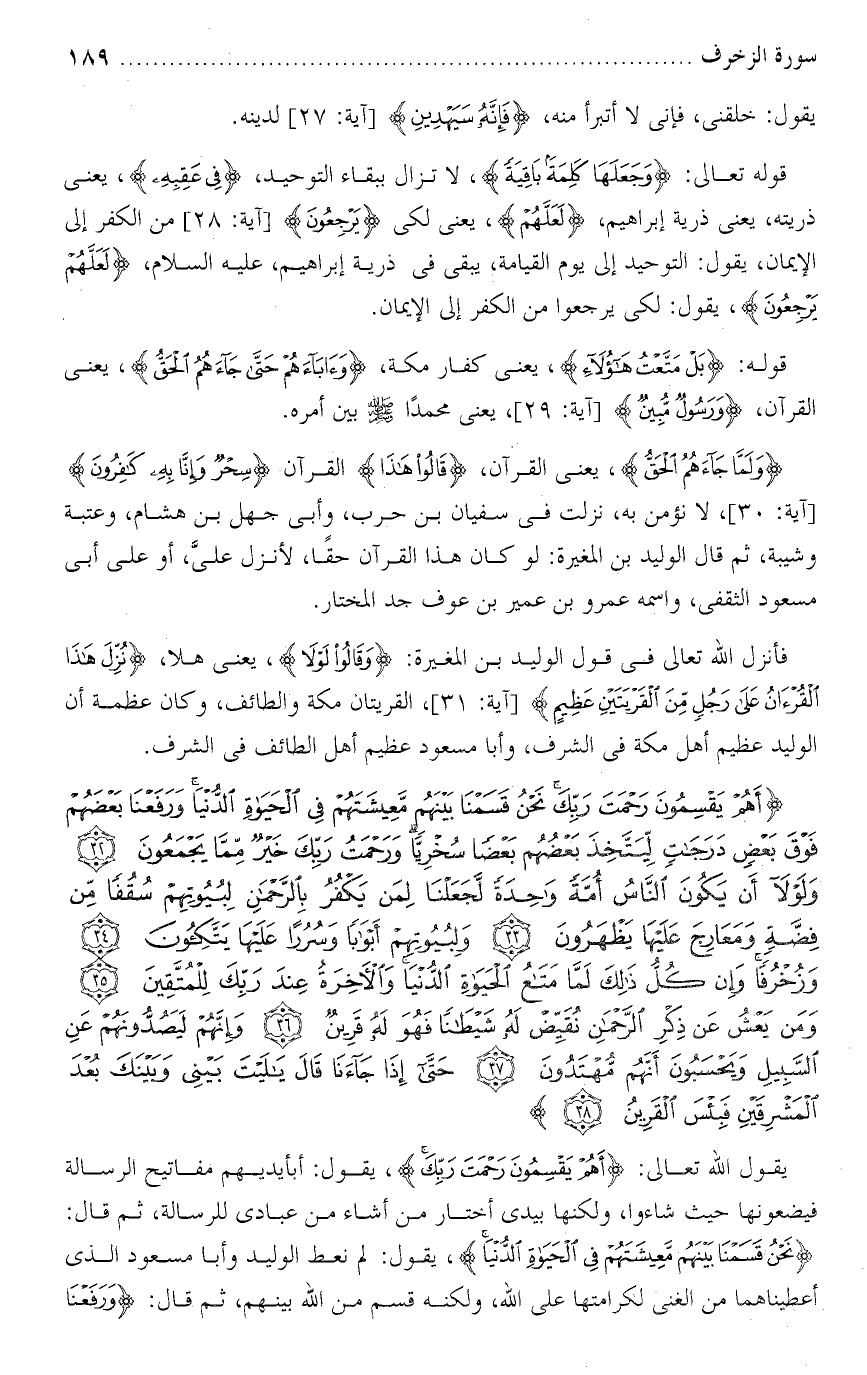 سورة الزخرف ..................................................................... ١٨٩
يقول: خلقنى، فإنى لا أتبرأ منه، ﴿فَإِنَّهُ سَيَهْدِينِ﴾ [آية: ٢٧] لدينه.
قوله تعـالى: ﴿وَجَعَلَهَا كَلِمَةً بَاقِيَةً﴾، لا تـزال ببقـاء التوحيـد، ﴿فِى عَقِبِهِۦ﴾، يعنـى
ذريته، يعنى ذرية إبراهيم، ﴿لَعَلَّهُمْ﴾، يعنى لكى ﴿يَرْجِعُونَ﴾ [آية: ٢٨] من الكفر إلى
الإيمان، يقول: التوحيد إلى يوم القيامة، يبقى فى ذريـة إبراهيـم، عليـه السـلام، ﴿لَعَلَّهُمْ
يَرْجِعُونَ﴾، يقول: لكى يرجعوا من الكفر إلى الإيمان.
قولـه: ﴿بَلْ مَتَّعْتُ هَٰٓؤُلَآءِ﴾، يعنـى كفـار مكـة، ﴿وَءَابَآءَهُمْ حَتَّىٰ جَآءَهُمُ الْحَقُّ﴾، يعنـى
القرآن، ﴿وَرَسُولٌ مُّبِينٌ﴾ [آية: ٢٩]، يعنى محمدًا ﷺ بين أمره.
﴿وَلَمَّا جَآءَهُمُ الْحَقُّ﴾، يعنـى القـرآن، ﴿قَالُوا۟ هَٰذَا﴾ القـرآن ﴿سِحْرٌ وَإِنَّا بِهِۦ كَٰفِرُونَ﴾
[آية: ٣٠]، لا نؤمن به، نزلت فـى سـفيان بـن حـرب، وأبـى جـهل بـن هشـام، وعتبـة
وشيبة، ثم قال الوليد بن المغيرة: لو كـان هـذا القـرآن حقًـا، لأنـزل علىَّ، أو علـى أبـى
مسعود الثقفى، واسمه عمرو بن عمير بن عوف جد المختار.
فأنزل الله تعالى فـى قـول الوليـد بـن المغـيرة: ﴿وَقَالُوا۟ لَوْلَا﴾، يعنـى هـلا، ﴿نُزِّلَ هَٰذَا
الْقُرْءَانُ عَلَىٰ رَجُلٍ مِّنَ الْقَرْيَتَيْنِ عَظِيمٍ﴾ [آية: ٣١]، القريتان مكة والطائف، وكان عظمـة أن
الوليد عظيم أهل مكة فى الشرف، وأبا مسعود عظيم أهل الطائف فى الشرف.
﴿أَهُمْ يَقْسِمُونَ رَحْمَتَ رَبِّكَ ۚ نَحْنُ قَسَمْنَا بَيْنَهُم مَّعِيشَتَهُمْ فِى الْحَيَوٰةِ الدُّنْيَا ۚ وَرَفَعْنَا بَعْضَهُمْ
فَوْقَ بَعْضٍ دَرَجَٰتٍ لِّيَتَّخِذَ بَعْضُهُم بَعْضًا سُخْرِيًّا ۗ وَرَحْمَتُ رَبِّكَ خَيْرٌ مِّمَّا يَجْمَعُونَ ٣٢
وَلَوْلَآ أَن يَكُونَ النَّاسُ أُمَّةً وَٰحِدَةً لَّجَعَلْنَا لِمَن يَكْفُرُ بِالرَّحْمَٰنِ لِبُيُوتِهِمْ سُقُفًا مِّن
فِضَّةٍ وَمَعَارِجَ عَلَيْهَا يَظْهَرُونَ ٣٣ وَلِبُيُوتِهِمْ أَبْوَٰبًا وَسُرُرًا عَلَيْهَا يَتَّكِـُٔونَ ٣٤
وَزُخْرُفًا ۚ وَإِن كُلُّ ذَٰلِكَ لَمَّا مَتَٰعُ الْحَيَوٰةِ الدُّنْيَا ۚ وَالْءَاخِرَةُ عِندَ رَبِّكَ لِلْمُتَّقِينَ ٣٥
وَمَن يَعْشُ عَن ذِكْرِ الرَّحْمَٰنِ نُقَيِّضْ لَهُۥ شَيْطَٰنًا فَهُوَ لَهُۥ قَرِينٌ ٣٦ وَإِنَّهُمْ لَيَصُدُّونَهُمْ عَنِ
السَّبِيلِ وَيَحْسَبُونَ أَنَّهُم مُّهْتَدُونَ ٣٧ حَتَّىٰٓ إِذَا جَآءَنَا قَالَ يَٰلَيْتَ بَيْنِى وَبَيْنَكَ بُعْدَ
الْمَشْرِقَيْنِ فَبِئْسَ الْقَرِينُ ٣٨ ﴾
يقـول الله تعـالى: ﴿أَهُمْ يَقْسِمُونَ رَحْمَتَ رَبِّكَ ۚ﴾، يقـول: أبأيديـهم مفـاتيح الرسـالة
فيضعونها حيث شاءوا، ولكنها بيدى أختـار مـن أشـاء مـن عبـادى للرسـالة، ثـم قـال:
﴿نَحْنُ قَسَمْنَا بَيْنَهُم مَّعِيشَتَهُمْ فِى الْحَيَوٰةِ الدُّنْيَا ۚ﴾، يقـول: لم نعـط الوليـد وأبـا مسـعود الـذى
أعطيناهما من الغنى لكرامتها على الله، ولكنـه قسـم مـن الله بينـهم، ثـم قـال: ﴿وَرَفَعْنَا